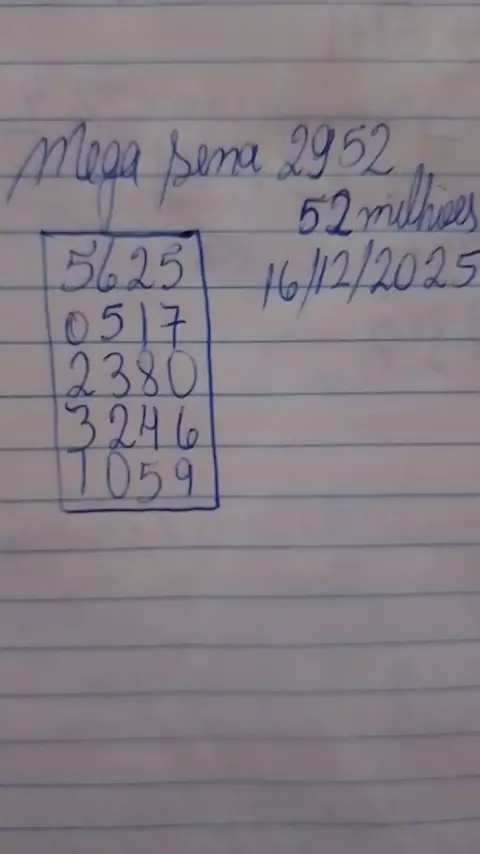 Mega sena 2952
52 milhões
16/12/2025
5625
0517
2380
3246
1059